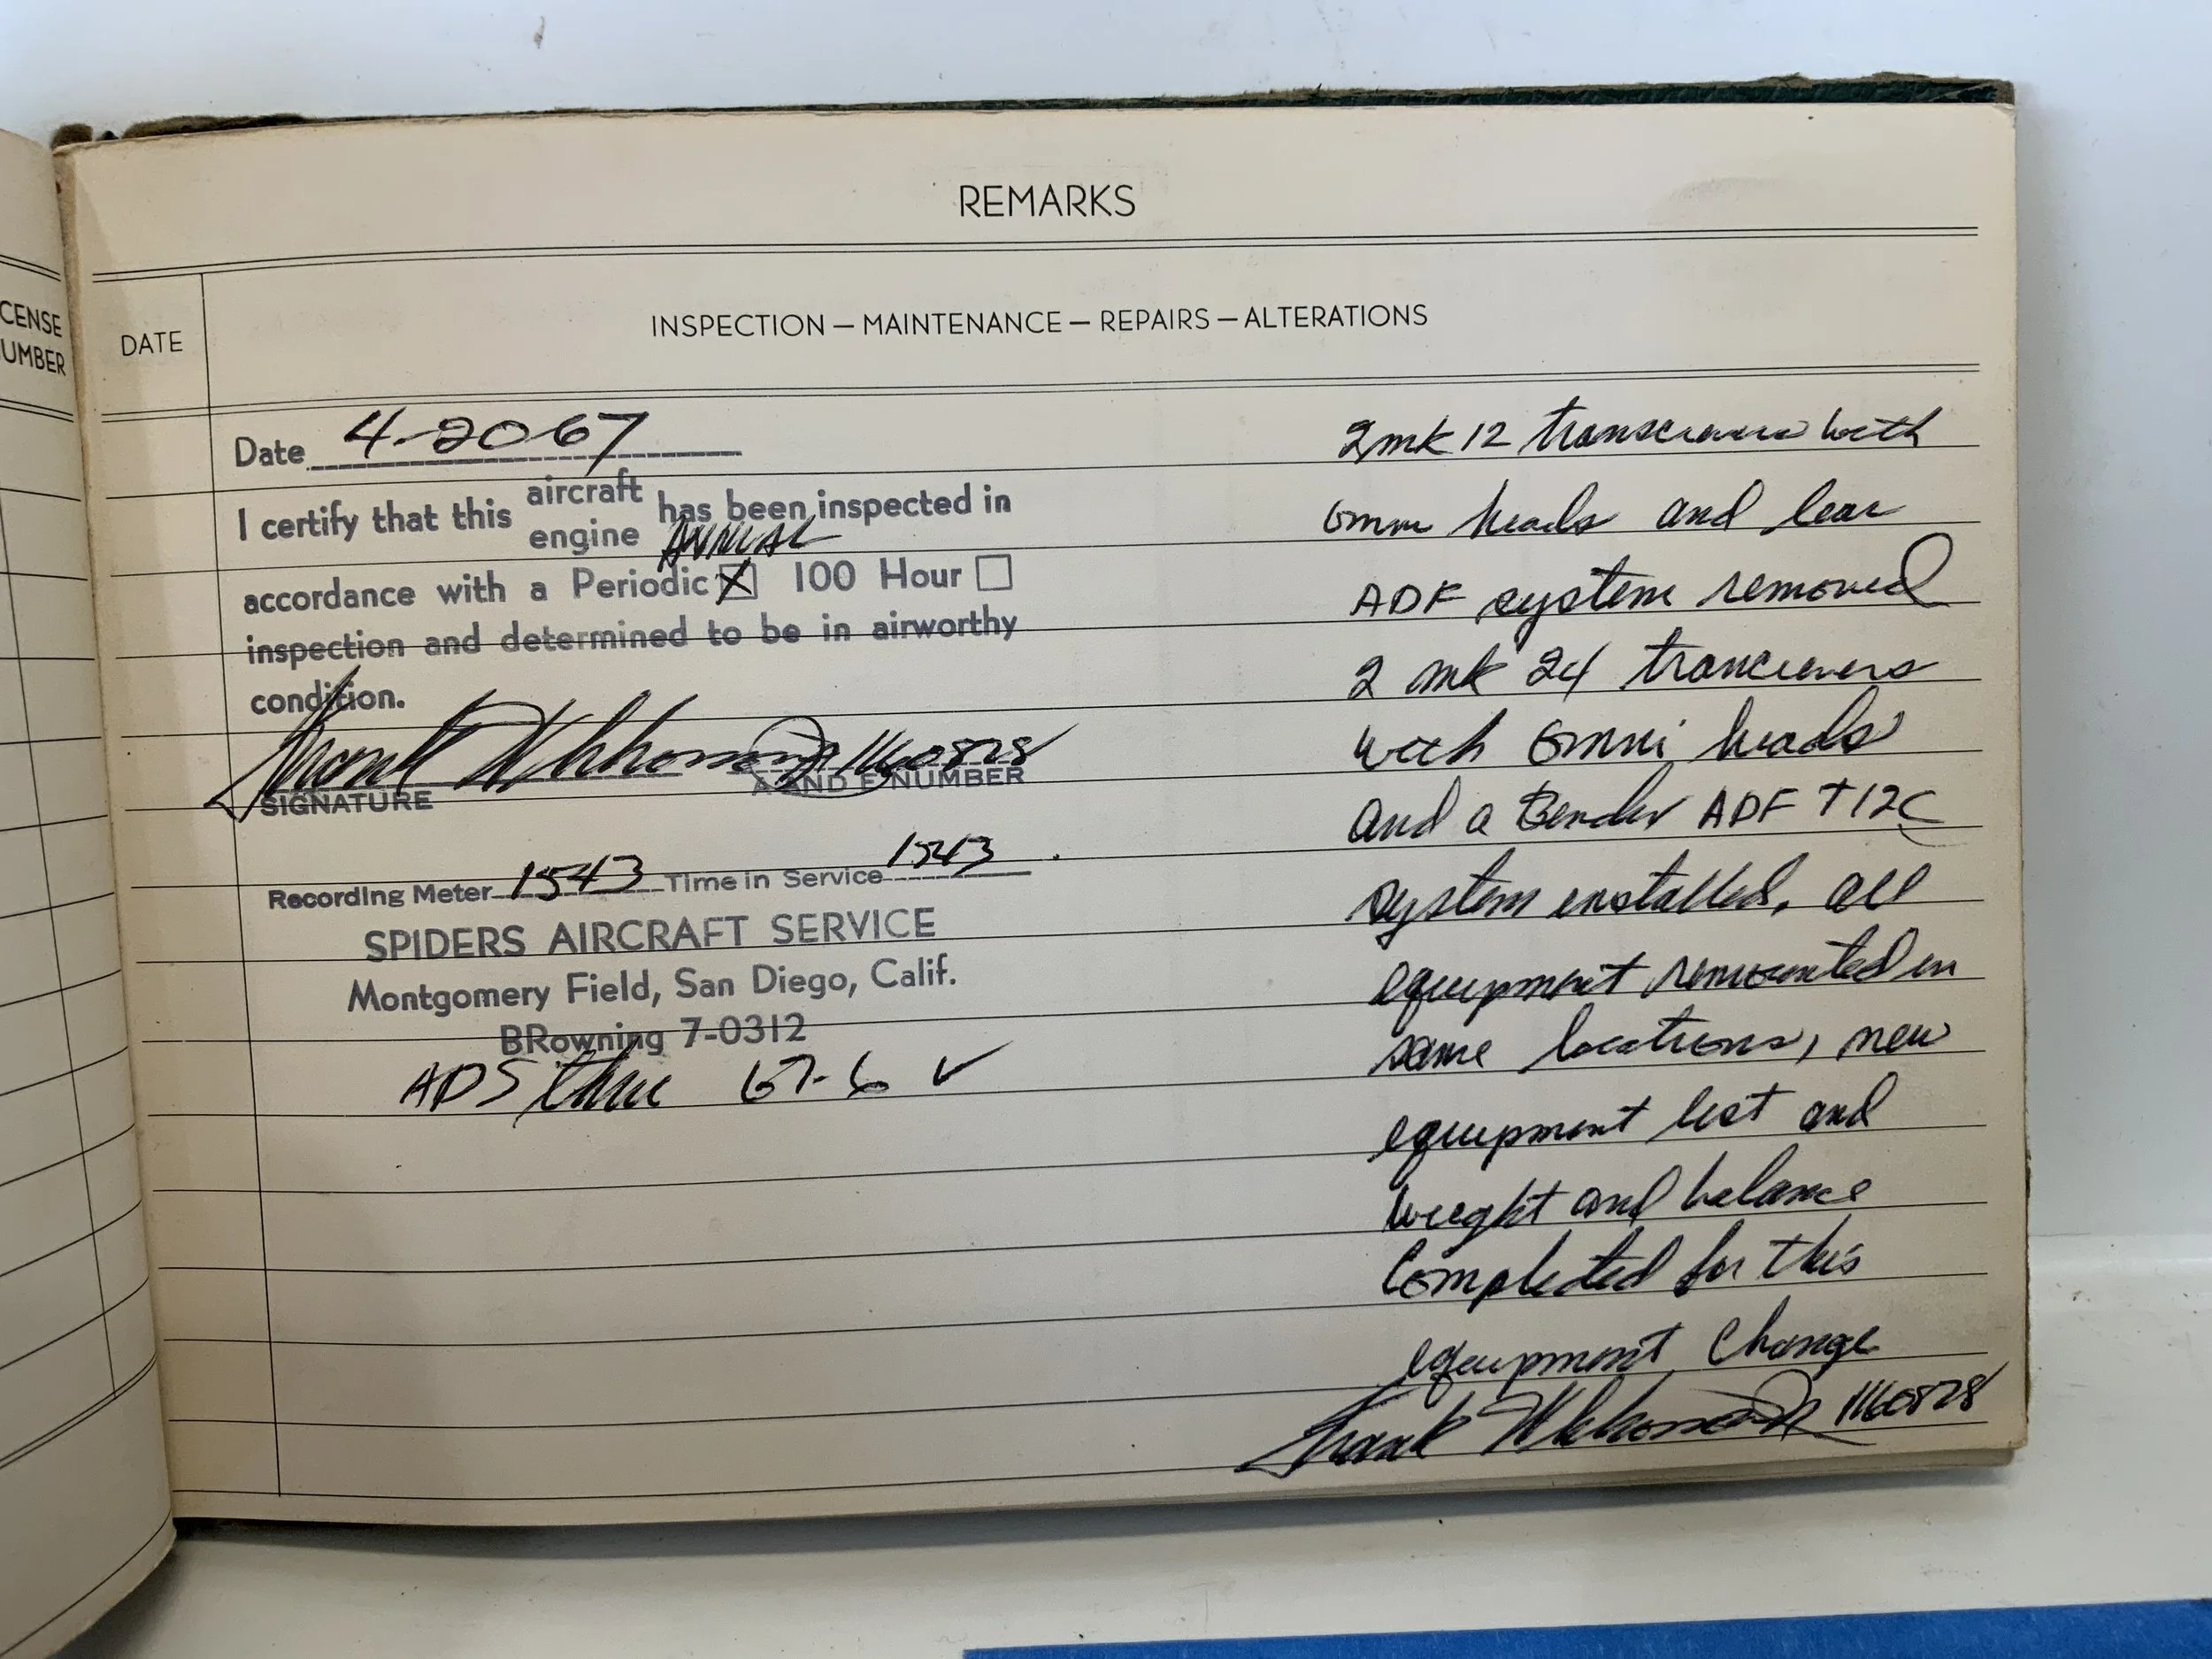 CENSE
UMBER
REMARKS
DATE
INSPECTION — MAINTENANCE — REPAIRS — ALTERATIONS
Date 4-20-67
I certify that this aircraft engine has been inspected in
ANNUAL
accordance with a Periodic ☒ 100 Hour ☐
inspection and determined to be in airworthy
condition.
Frank 1160828
SIGNATURE A AND E NUMBER
Recording Meter 1543 Time in Service 1543
SPIDERS AIRCRAFT SERVICE
Montgomery Field, San Diego, Calif.
BRowning 7-0312
ADS thru 67-6 ✓
2 mk 12 with
omni heads and lear
ADF system removed
2 mk 24 trancievers
with omni heads
and a ADF T12C
system installed, all
equipment remounted in
same locations, new
equipment list and
weight and balance
Completed for this
equipment Change
Frank 1160828